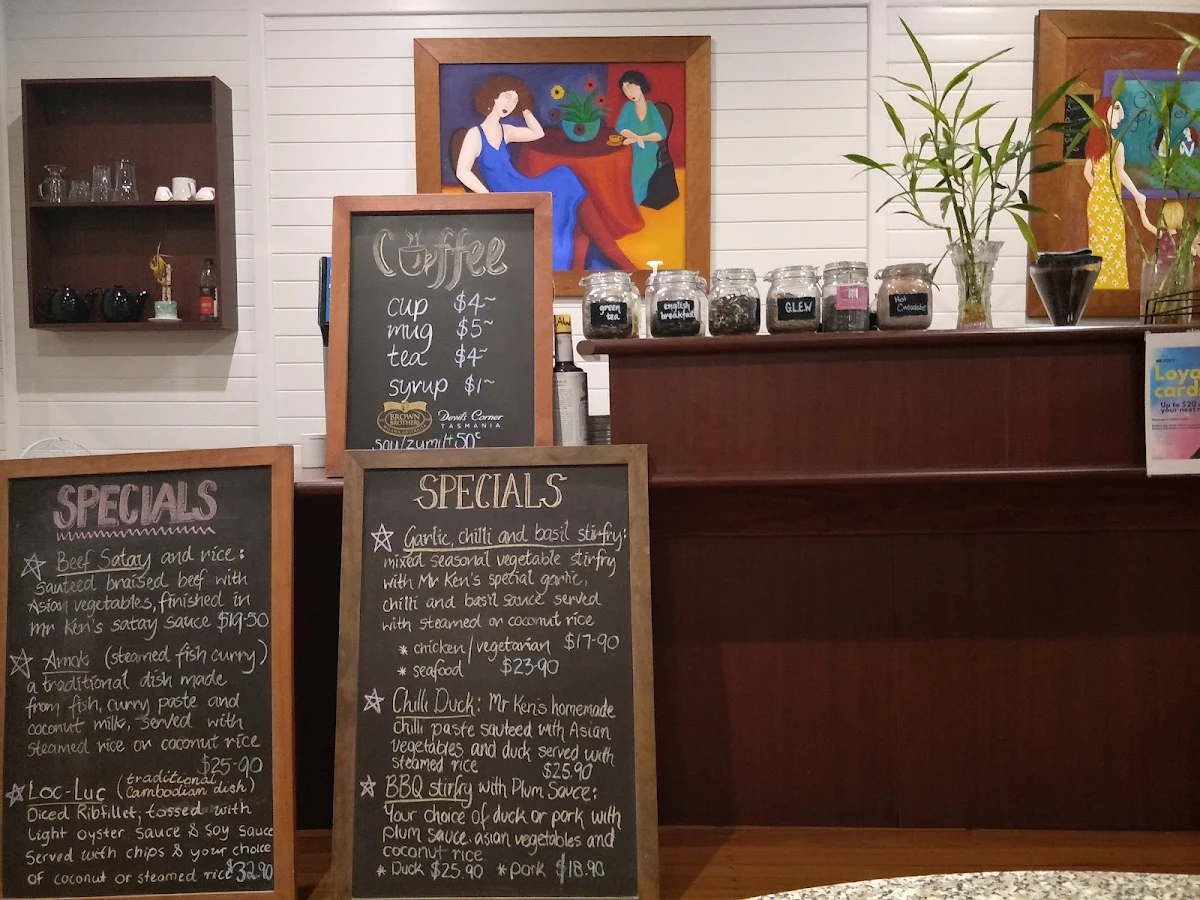 Coffee
cup $4~
mug $5~
tea $4~
syrup $1~
BROWN
BROTHERS
Devil's Corner
TASMANIA
soy/zymil+50c
green
tea
english
breakfast
G.L.E.W
Hot
Chocolate
Loya
card
Up to $20
your next
SPECIALS
Beef Satay and rice:
sauteed braised beef with
Asian vegetables, finished in
Mr Ken's satay sauce $19-50
Amok (steamed fish curry)
a traditional dish made
from fish, curry paste and
coconut milk, served with
steamed rice or coconut rice
$25-90
Loc-Luc (traditional
Cambodian dish)
Diced Ribfillet, tossed with
Light oyster sauce & Soy sauce
Served with chips & your choice
of coconut or steamed rice $32.90
SPECIALS
Garlic, chilli and basil stirfry:
mixed seasonal vegetable stirfry
with Mr Ken's special garlic,
chilli and basil sauce served
with steamed or coconut rice
* chicken/vegetarian $17-90
* seafood $23-90
Chilli Duck: Mr Ken's homemade
Chilli paste sauteed with Asian
vegetables and duck served with
steamed rice $25.90
BBQ stirfry with Plum Sauce:
Your choice of duck or pork with
plum sauce, asian vegetables and
coconut rice
* Duck $25.90 * pork $18.90